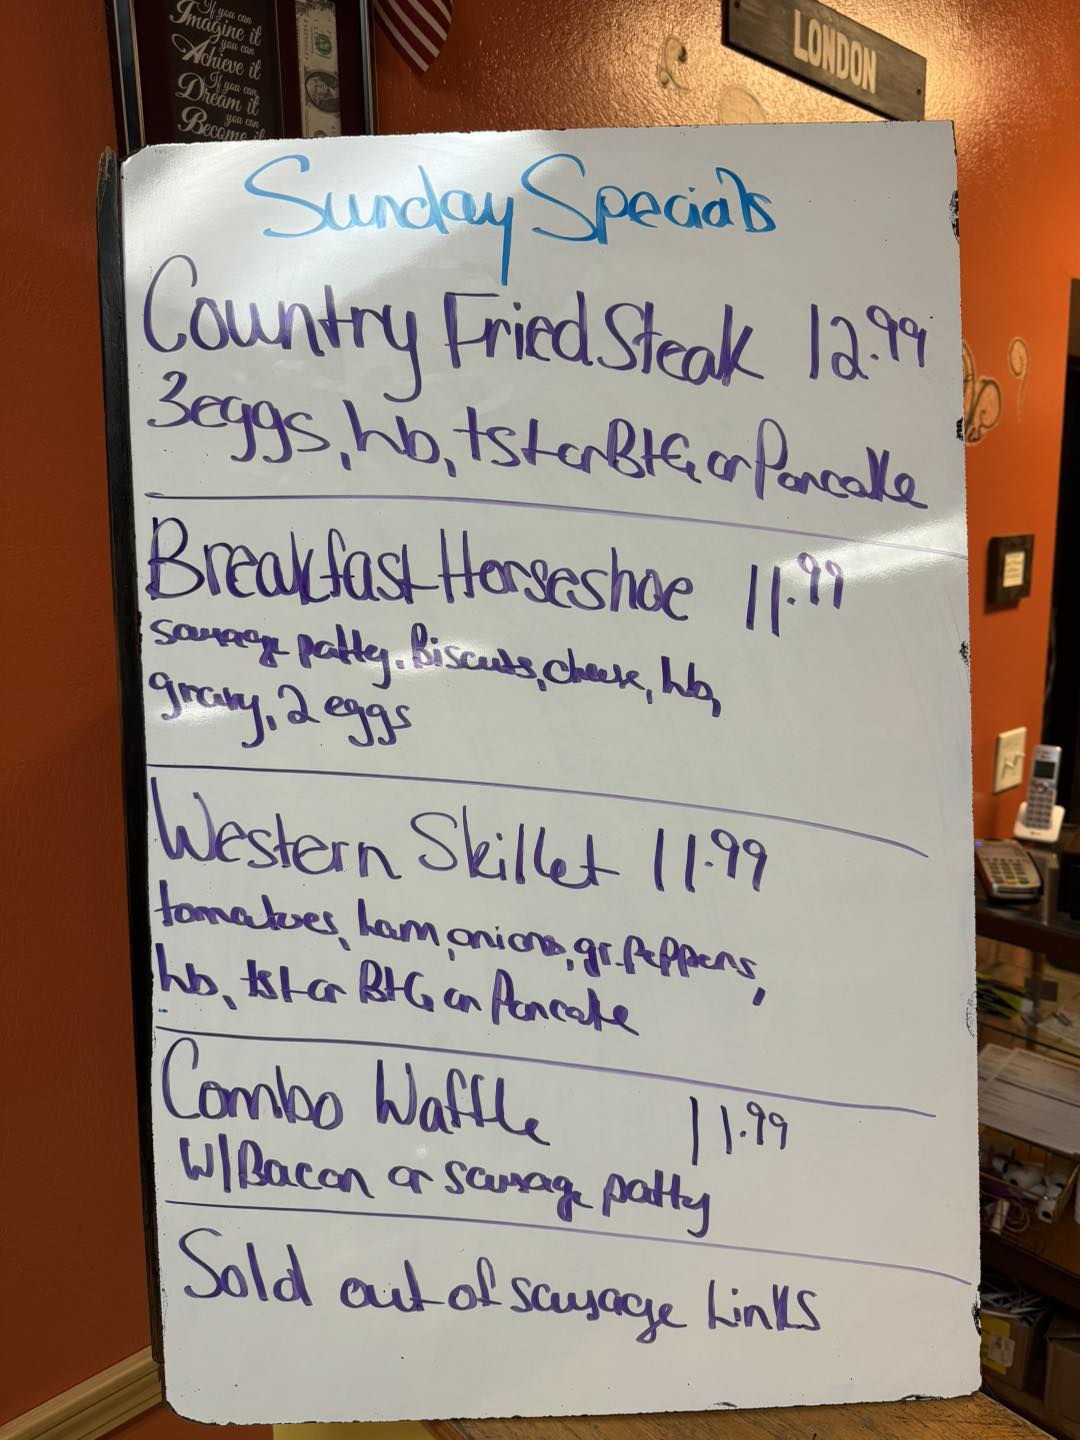 If you can
Imagine it
you can
Achieve it
If you can
Dream it
you can
Become it
LONDON
Sunday Specials
Country Fried Steak 12.99
3eggs, hb, tst or B+G or Pancake
Breakfast Horseshoe 11.99
sausage patty, Biscuits, cheese, hb,
gravy, 2 eggs
Western Skillet 11.99
tomatoes, ham, onions, gr. peppers,
hb, tst or B+G or Pancake
Combo Waffle 11.99
W/Bacon or sausage patty
Sold out of sausage Links